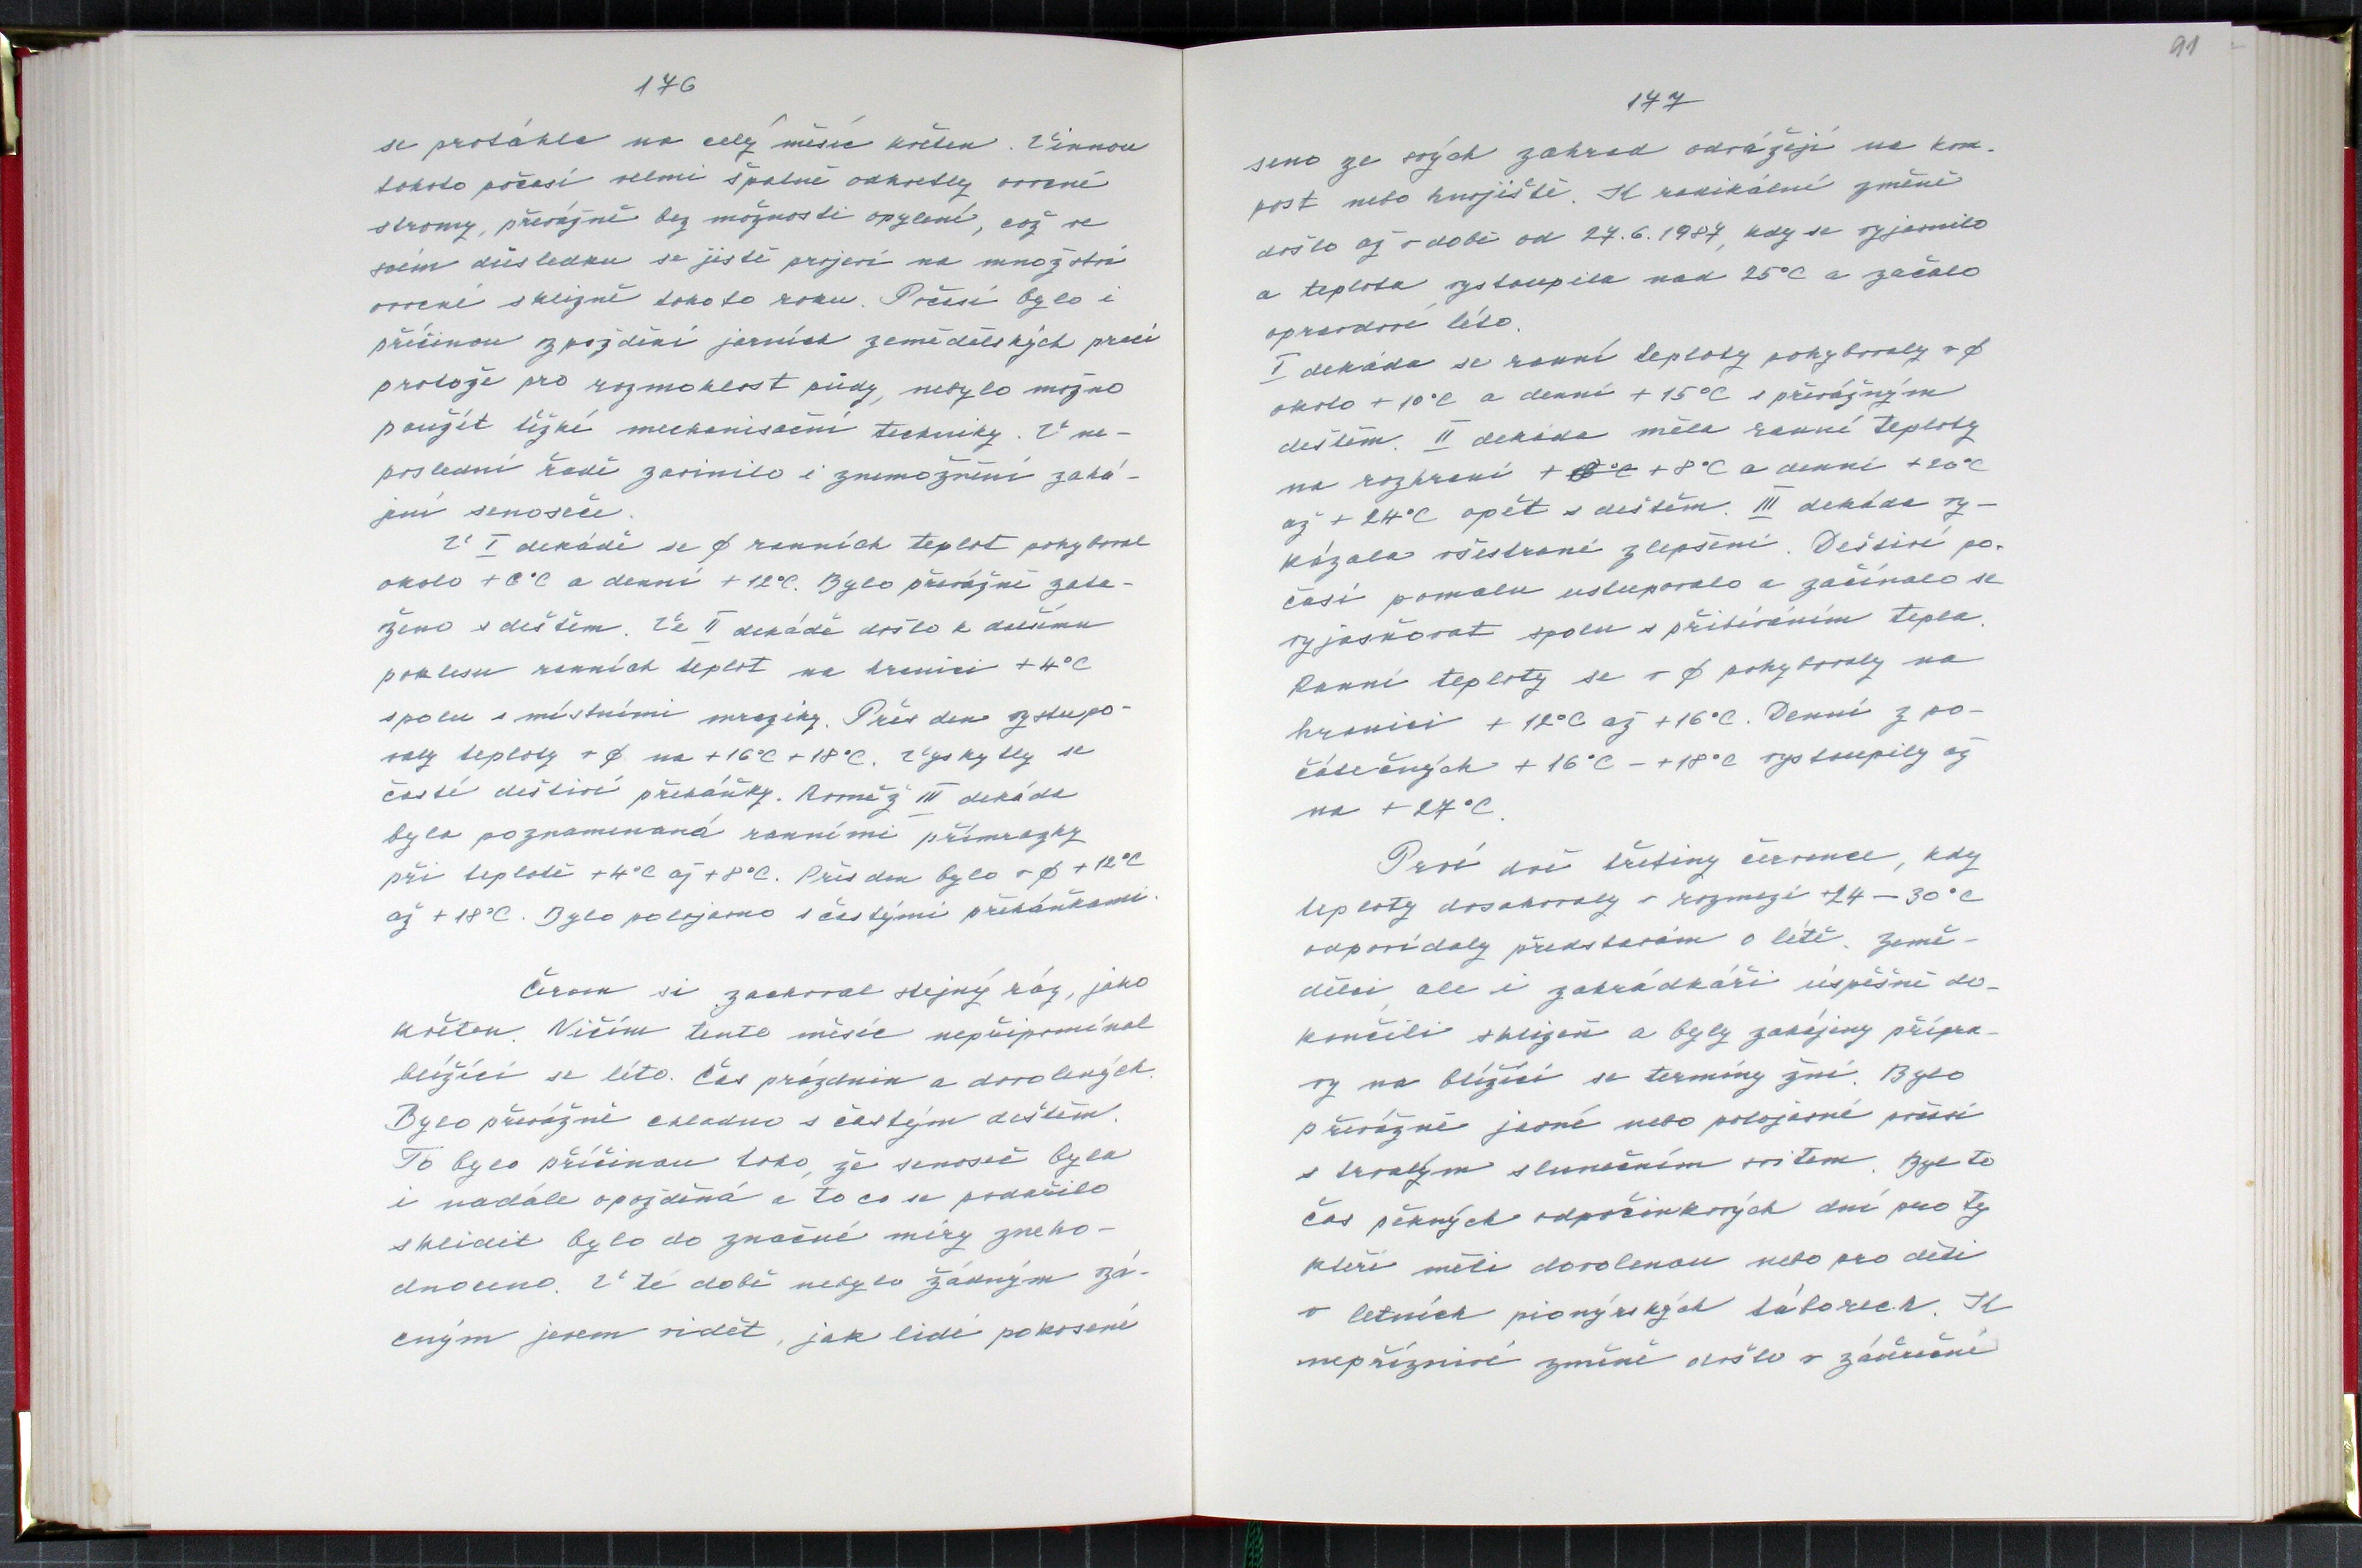 176
se protáhla na celý měsíc květen. Vinnou
tohoto počasí velmi špatně odkvetly ovocné
stromy, převážně bez možnosti opylení, což ve
svém důsledku se jistě projeví na množství
ovocné sklizně tohoto roku. Počasí bylo i
příčinou zpoždění jarních zemědělských prací
protože pro rozmoklost půdy, nebylo možno
použít těžké mechanisační techniky. V ne-
poslední řadě zavinilo i znemožnění zahá-
jení senoseče.
V I dekádě se ϕ ranních teplot pohyboval
okolo + 6°C a denní + 12°C. Bylo převážně zata-
ženo s deštěm. Ve II dekádě došlo k dalšímu
poklesu ranních teplot na hranici + 4°C
spolu s místními mrazíky. Přes den vystupo-
valy teploty v ϕ na + 16°C + 18°C. Vyskytly se
časté dešťové přeháňky. Rovněž III dekáda
byla poznamenaná ranními přímrazky
při teplotě + 4°C až + 8°C. Přes den bylo v ϕ + 12°C
až + 18°C. Bylo polojasno s častými přeháňkami.
Červen si zachoval stejný ráz, jako
květen. Ničím tento měsíc nepřipomínal
blížící se léto. Čas prázdnin a dovolených.
Bylo převážně chladno s častým deštěm.
To bylo příčinou toho, že senoseč byla
i nadále opožděná a to co se podařilo
sklidit bylo do značné míry zneho-
dnoceno. V té době nebylo žádným vzá-
cným jevem vidět, jak lidé pokosené
91
177
seno ze svých zahrad odvážejí na kom-
post nebo hnojiště. K radikální změně
došlo až v době od 27.6.1987, kdy se vyjasnilo
a teplota vystoupila nad 25°C a začalo
opravdové léto.
I dekáda se ranní teploty pohybovaly v ϕ
okolo + 10°C a denní + 15°C s převážným
deštěm. II dekáda měla ranní teploty
na rozhraní + 8°C + 8°C a denní + 20°C
až + 24°C opět s deštěm. III dekáda vy-
kázala všestrané zlepšení. Deštivé po-
časí pomalu ustupovalo a začínalo se
vyjasňovat spolu s přibíráním tepla.
Ranní teploty se v ϕ pohybovaly na
hranici + 12°C až + 16°C. Denní z po-
čátečných + 16°C - + 18°C vystoupily až
na + 27°C.
Prvé dvě třetiny července, kdy
teploty dosahovaly v rozmezí +24 - 30°C
odpovídaly představám o létě. Země-
dělci ale i zahrádkáři úspěšně do-
končili sklizeň a byly zahájeny přípra-
vy na blížící se termíny žní. Bylo
převážně jasné nebo polojasné počasí
s trvalým slunečním svitem. Byl to
čas pěkných odpočinkových dní pro ty
kteří měli dovolenou nebo pro děti
v letních pionýrských táborech. K
nepříznivé změně došlo v závěrečné